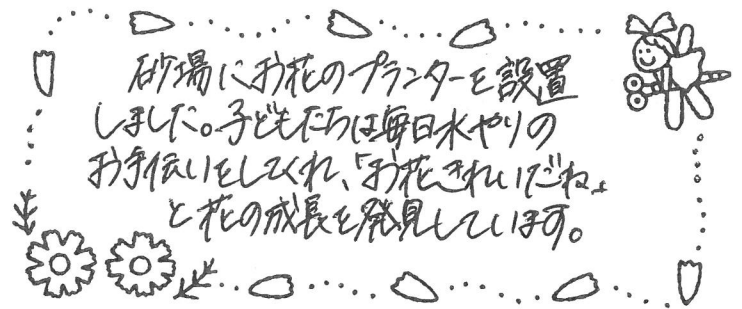 砂場にお花のプランターを設置
しました。子どもたちは毎日水やりの
お手伝いをしてくれ、「お花きれいだね」
と花の成長を発見しています。